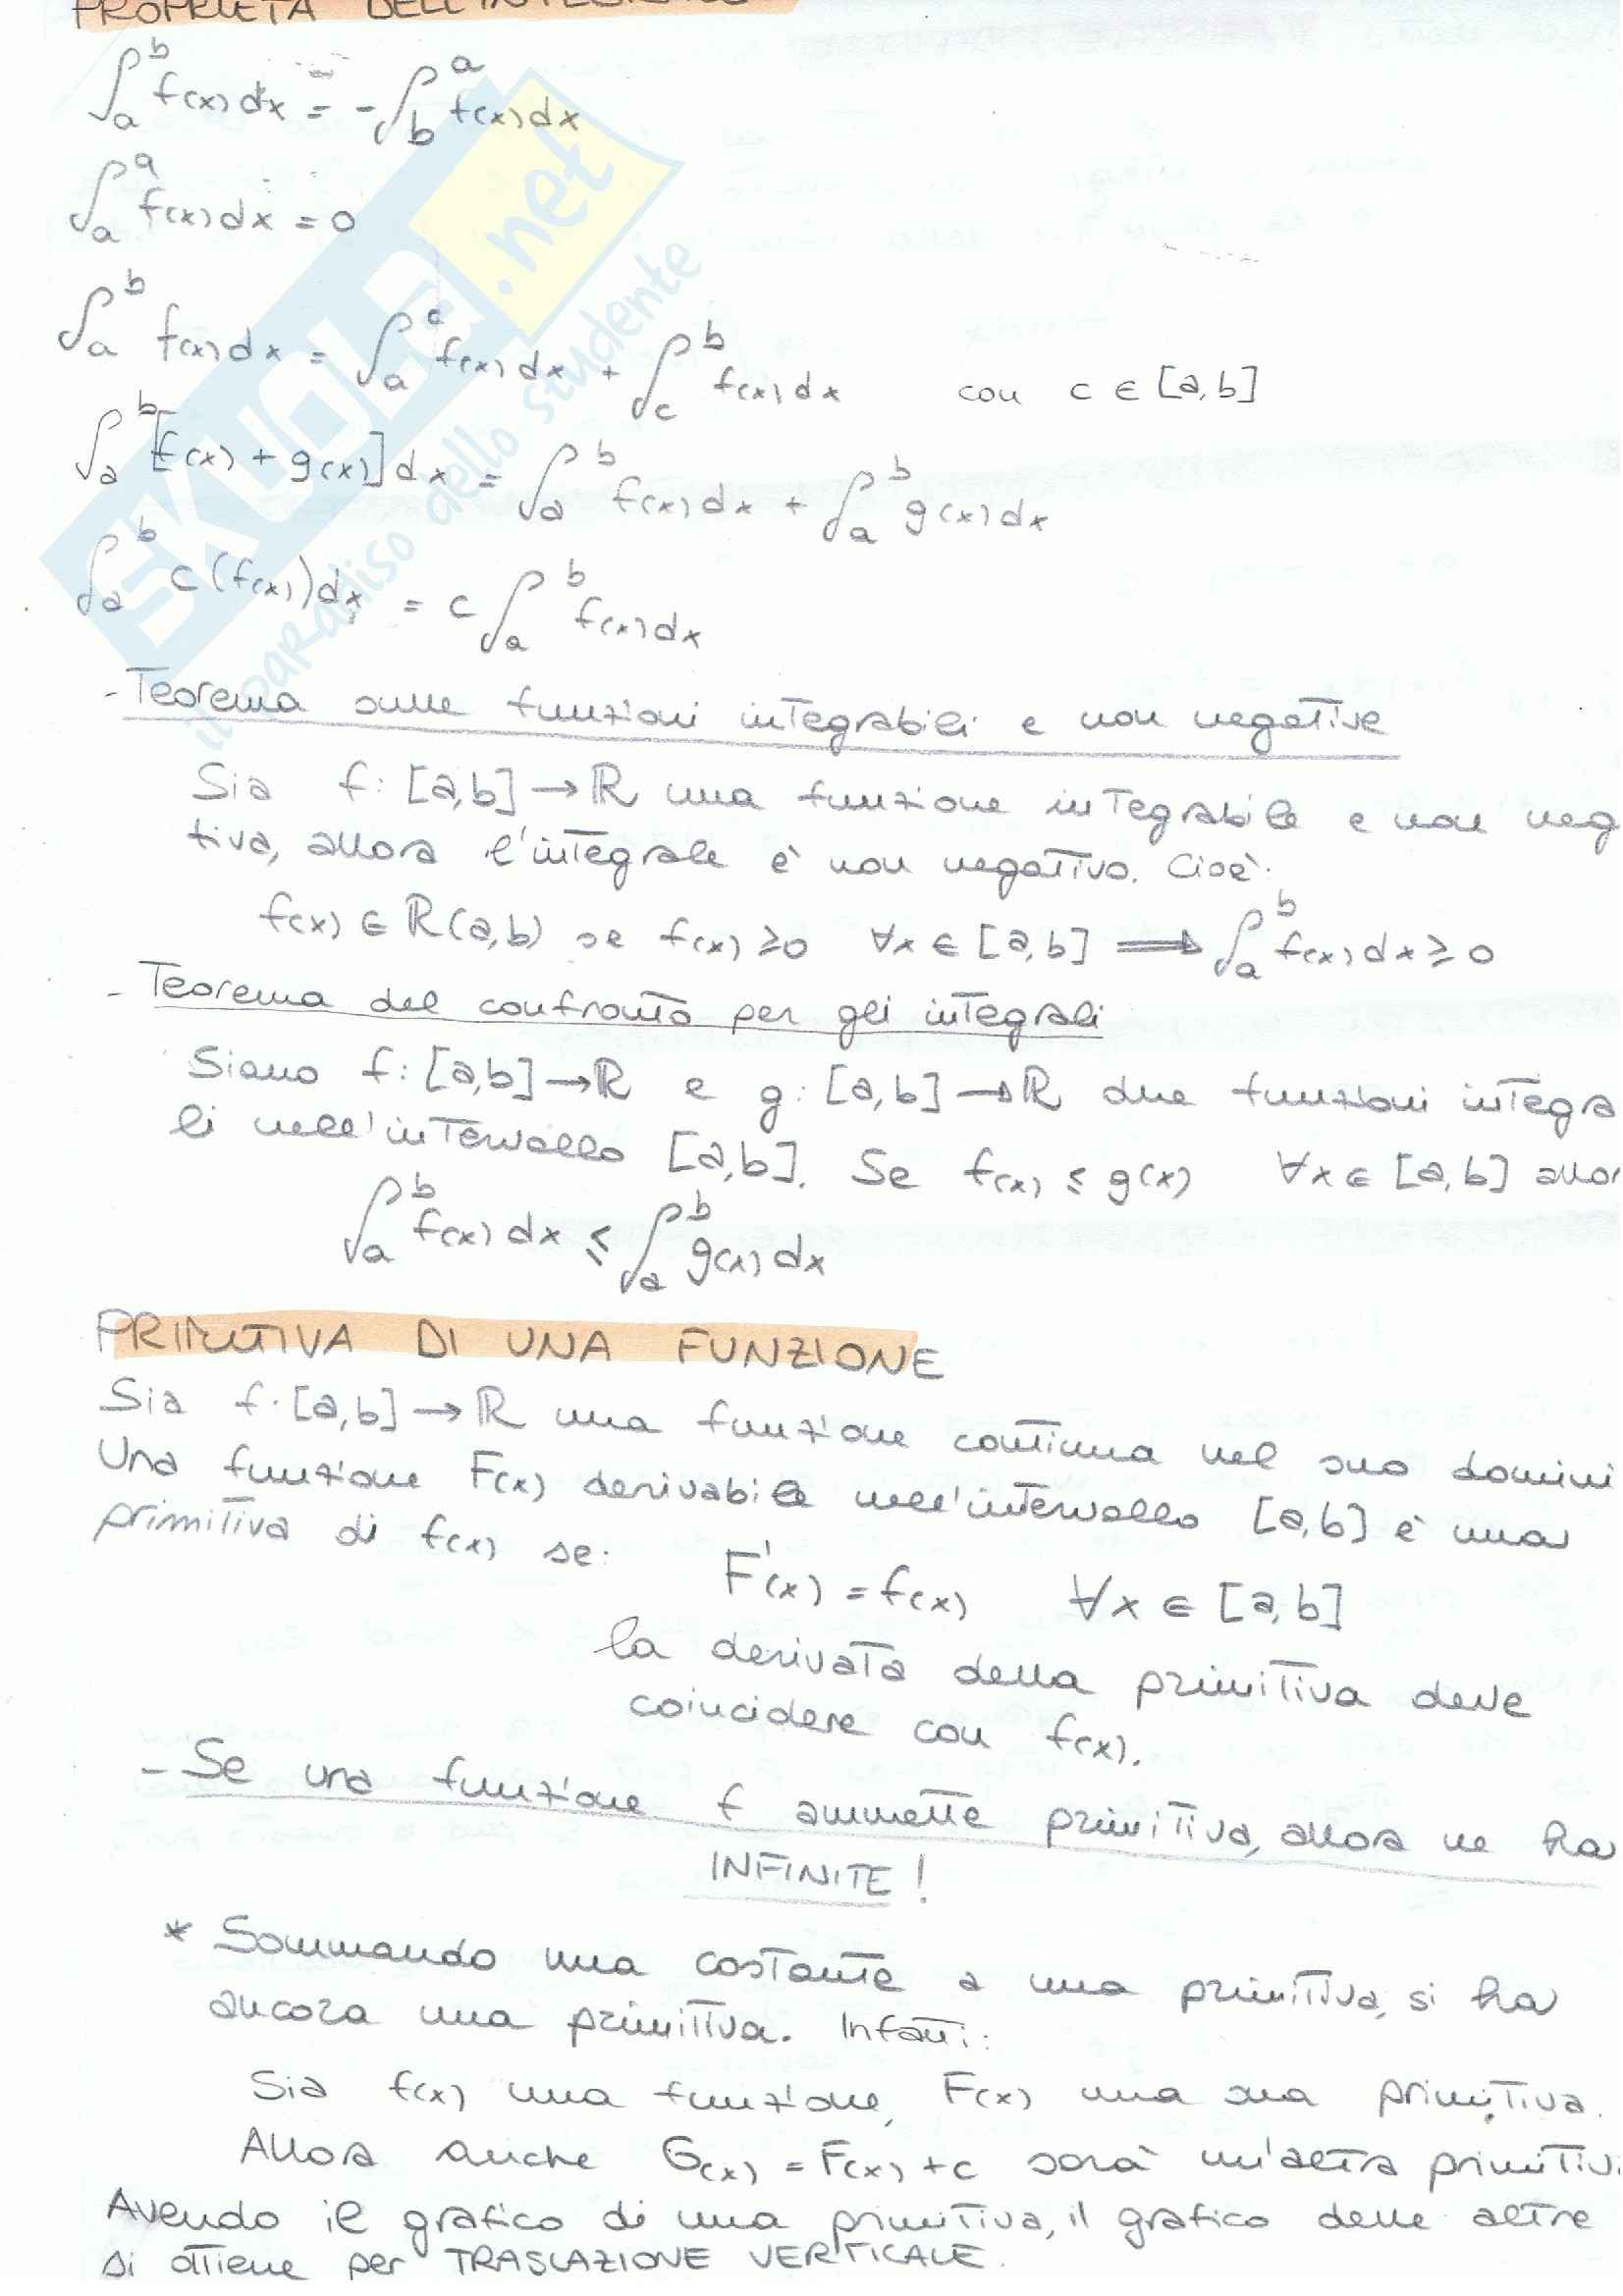 PROPRIETÀ DELL'INTEGRALE
∫_a^b f(x) dx = -∫_b^a f(x) dx
∫_a^a f(x) dx = 0
∫_a^b f(x) dx = ∫_a^c f(x) dx + ∫_c^b f(x) dx con c ∈ [a,b]
∫_a^b [f(x) + g(x)] dx = ∫_a^b f(x) dx + ∫_a^b g(x) dx
∫_a^b c (f(x)) dx = c ∫_a^b f(x) dx
SKUOLA.net
il paradiso dello studente
- Teorema sulle funzioni integrabili e non negative
Sia f: [a,b] → ℝ una funzione integrabile e non neg
tiva, allora l'integrale è non negativo. Cioè:
f(x) ∈ R(a,b) se f(x) ≥ 0 ∀x ∈ [a,b] ⟹ ∫_a^b f(x) dx ≥ 0
- Teorema del confronto per gli integrali
Siano f: [a,b] → ℝ e g: [a,b] → ℝ due funzioni integra
li nell'intervallo [a,b]. Se f(x) ≤ g(x) ∀x ∈ [a,b] allor
∫_a^b f(x) dx ≤ ∫_a^b g(x) dx
PRIMITIVA DI UNA FUNZIONE
Sia f: [a,b] → ℝ una funzione continua nel suo domini
Una funzione F(x) derivabile nell'intervallo [a,b] è una
primitiva di f(x) se: F'(x) = f(x) ∀x ∈ [a,b]
la derivata della primitiva deve
coincidere con f(x).
- Se una funzione f ammette primitiva, allora ne ha
INFINITE!
* Sommando una costante a una primitiva, si ha
ancora una primitiva. Infatti:
Sia f(x) una funzione, F(x) una sua primitiva.
Allora anche G(x) = F(x) + c sarà un'altra primitiv
Avendo il grafico di una primitiva, il grafico delle altre
si ottiene per TRASLAZIONE VERTICALE.